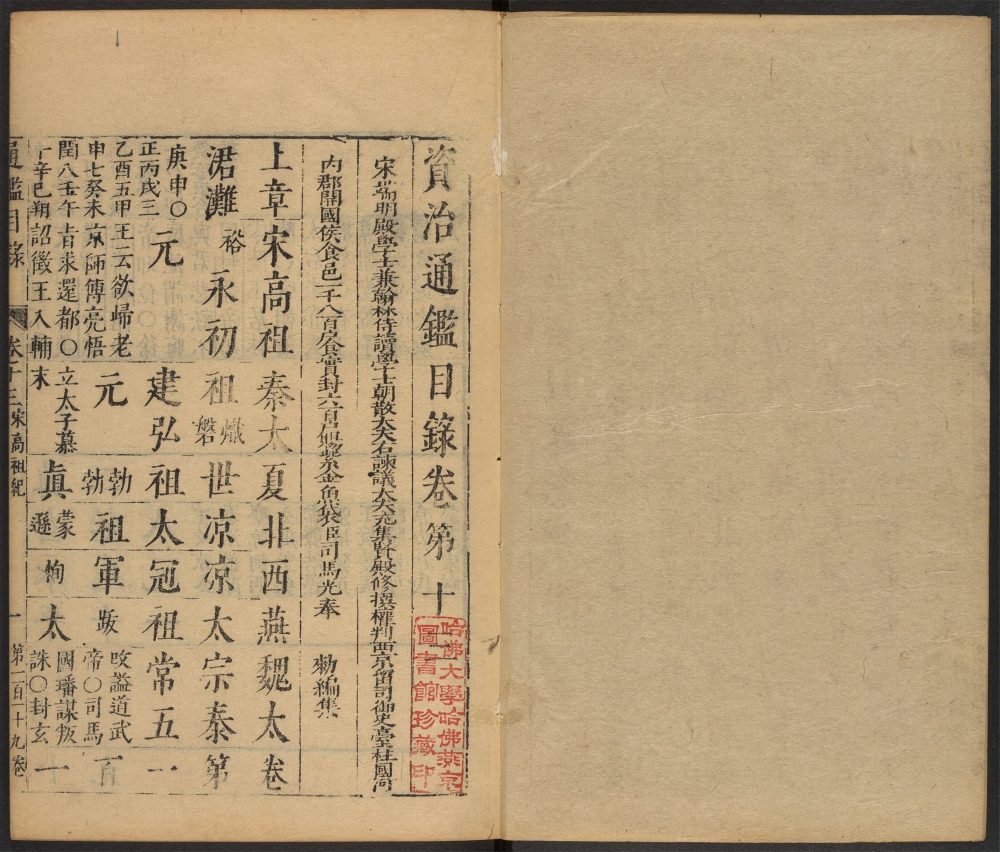 資治通鑑目錄卷第十
哈佛大學哈佛燕京
圖書館珍藏印
宋端明殿學士兼翰林侍讀學士朝散大夫右諫議大夫充集賢殿修撰權判西京留司御史臺柱國河
內郡開國侯食邑一千八百戶食實封六百戶賜紫金魚袋臣司馬光奉 勅編集
上章 宋高祖 秦太 夏 北 西 燕 魏太 卷
涒灘 裕 永初 祖 熾磐 世 凉 凉 太 宗泰 第
庚申〇 元 建弘 祖 太 冠 祖 常五 一
正丙戌三
乙酉五甲 王云欲歸老 元 勃勃 祖 軍 跋 㕮諡道武 百
申七癸未 京師傅亮悟 帝〇司馬
閏八壬午 㫖求還都〇 立太子慕 眞 蒙 恂 太 國璠謀叛 一
十辛巳朔 詔徵王入輔 末 遜 誅〇封玄
通鑑目錄 卷十三 宋高祖紀 一 第一百一十九卷